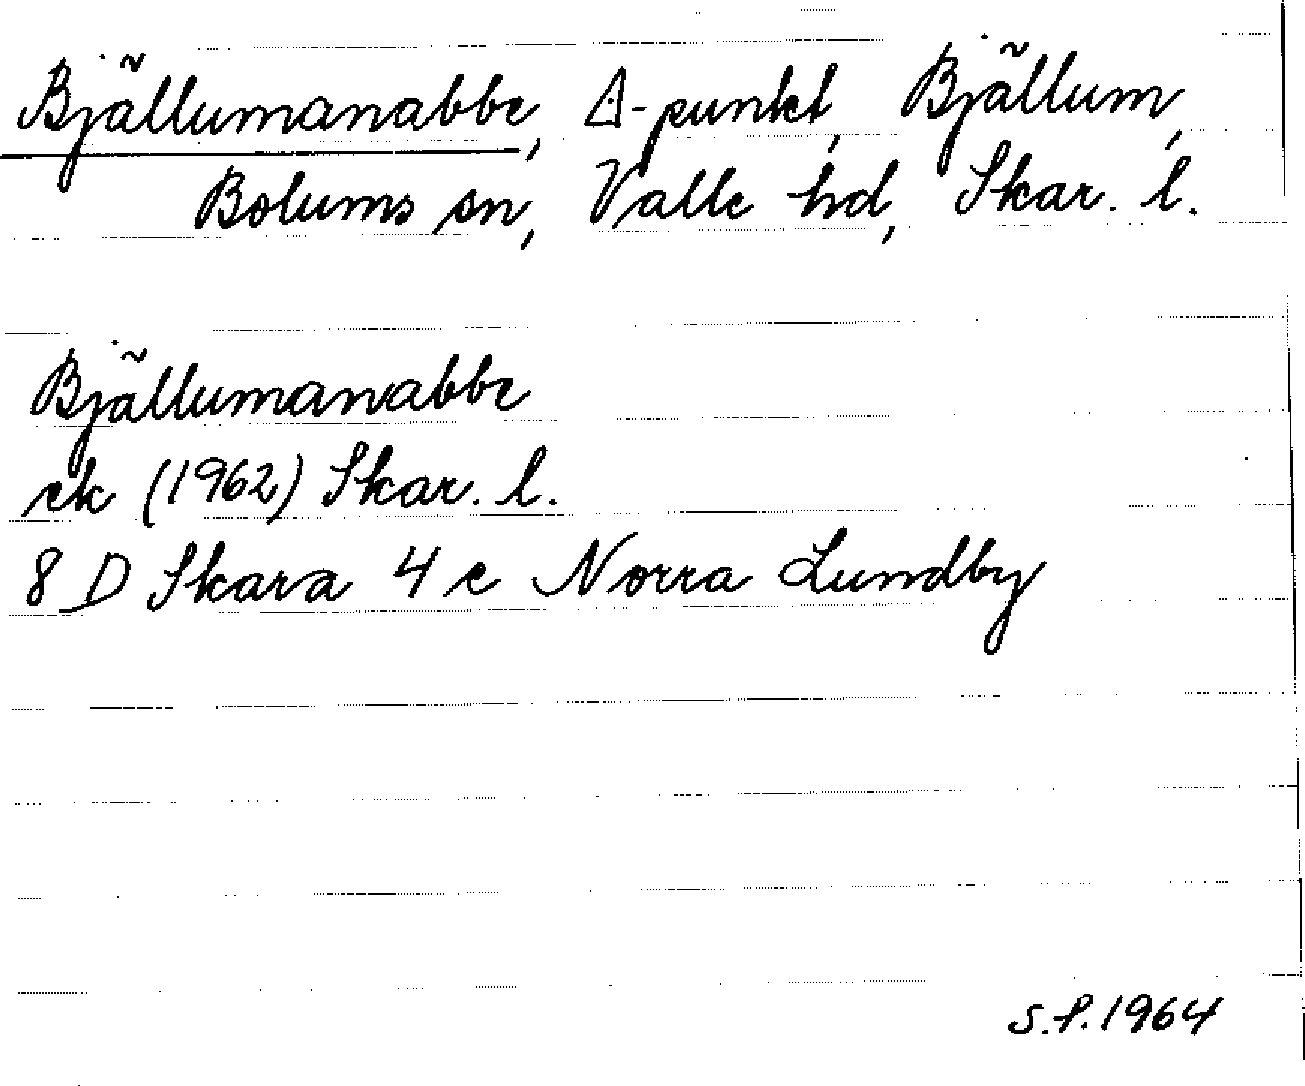 Bjällumanabbe, ∆-punkt, Bjällum,
Bolums sn, Valle hd, Skar. l.
Bjällumanabbe
ek (1962) Skar. l.
8 D Skara 4 e Norra Lundby
S.P. 1964